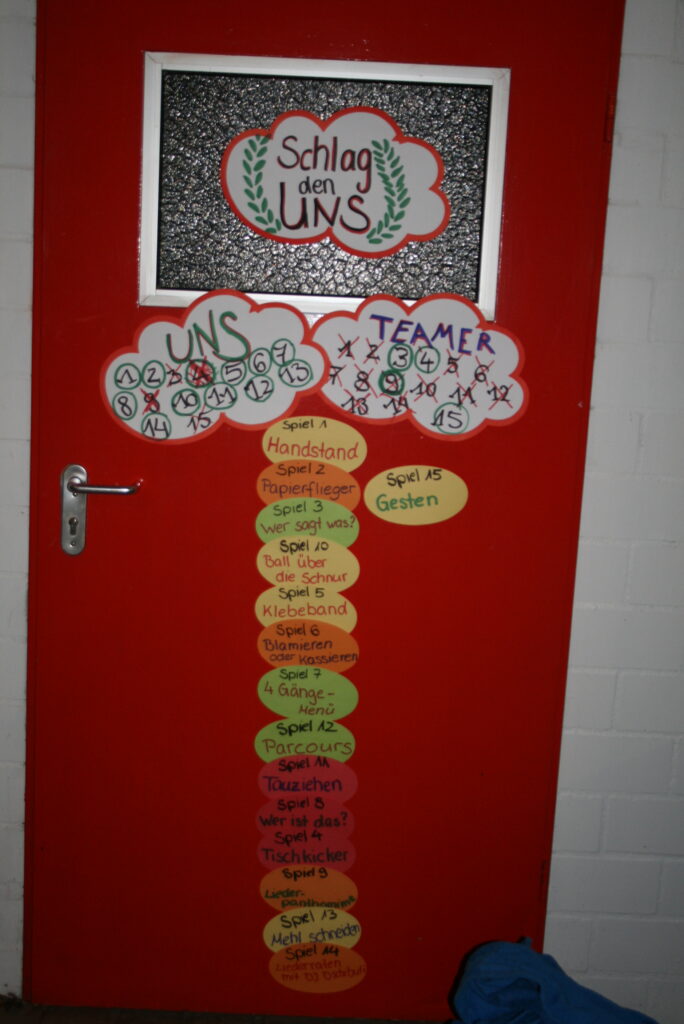 Schlag
den
UNS
UNS
1 2 3 4 5 6 7
8 9 10 11 12 13
14 15
TEAMER
1 2 3 4 5 6
7 8 9 10 11 12
13 14 15
Spiel 1
Handstand
Spiel 2
Papierflieger
Spiel 15
Gesten
Spiel 3
Wer sagt was?
Spiel 10
Ball über
die Schnur
Spiel 5
Klebeband
Spiel 6
Blamieren
oder Kassieren
Spiel 7
4 Gänge-
Menü
Spiel 12
Parcours
Spiel 11
Tauziehen
Spiel 8
Wer ist das?
Spiel 4
Tischkicker
Spiel 9
Lieder-
panthomime
Spiel 13
Mehl schneiden
Spiel 14
Liederraten
mit DJ